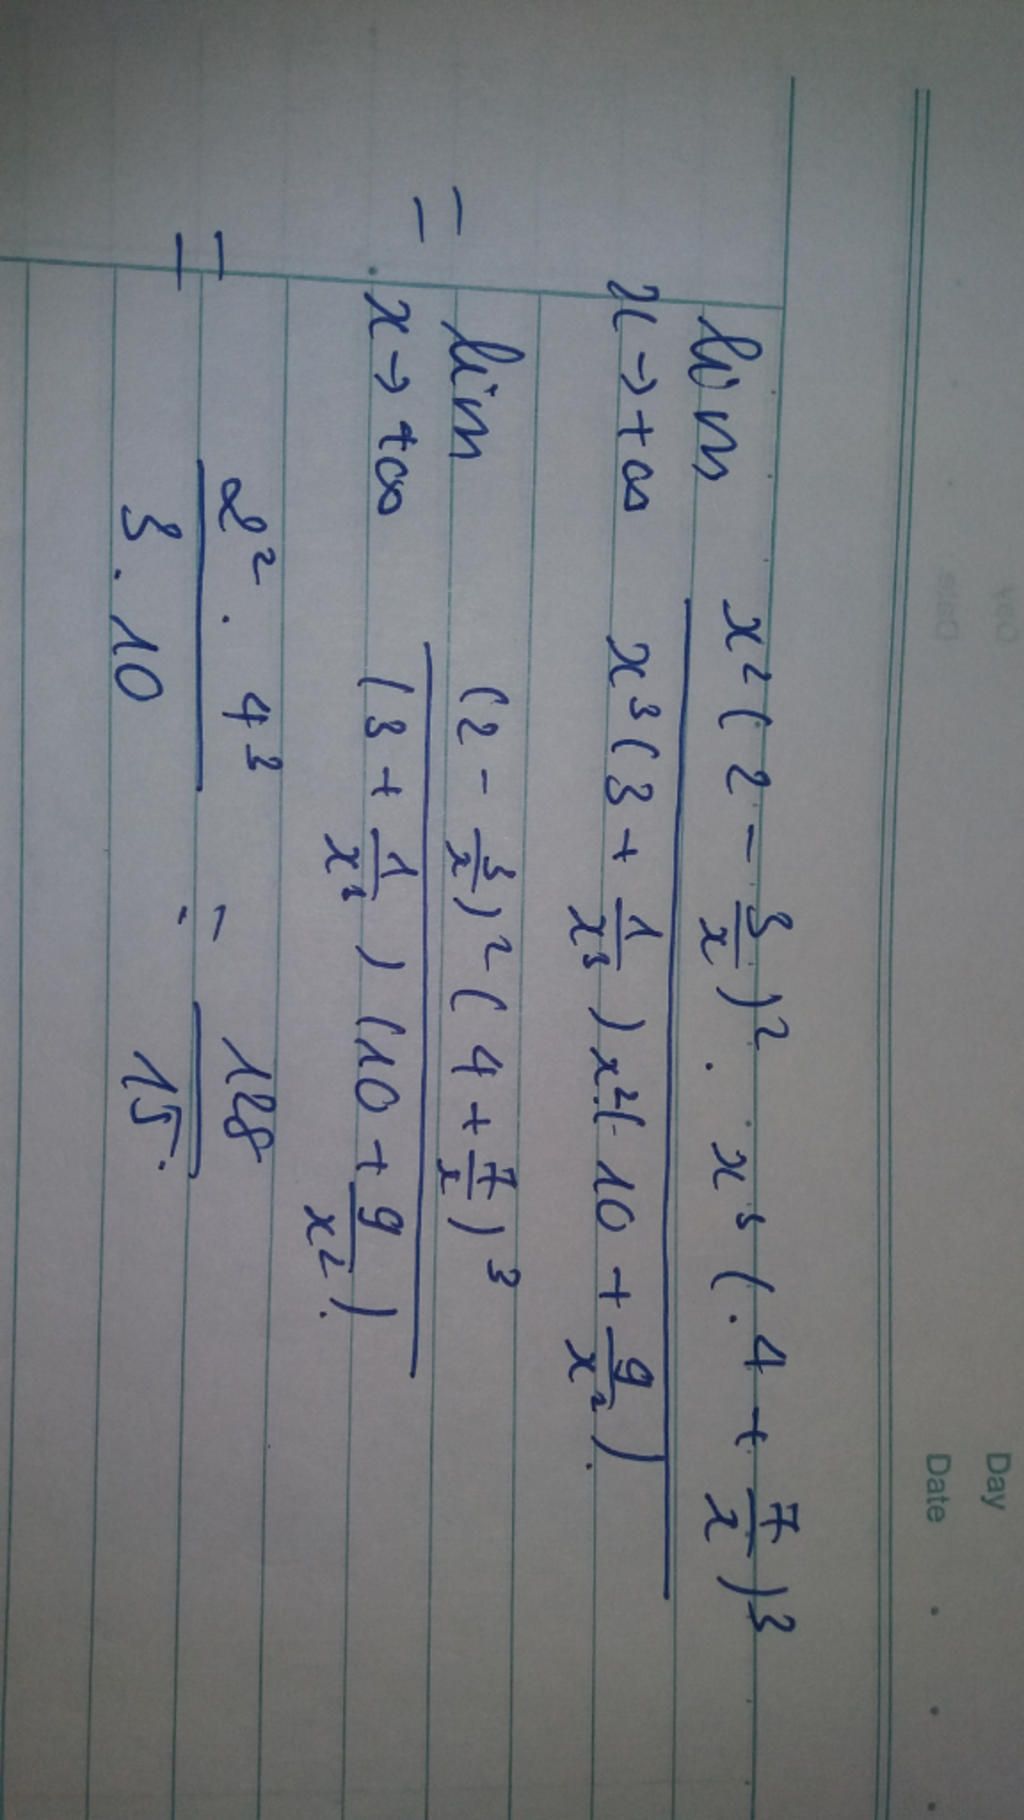 Day
Date
lim x²(2 - 3/x)² . x³(4 + 7/x)³
x→+∞ x³(3 + 1/x³) x²(10 + 9/x²)
= lim (2 - 3/x)² (4 + 7/x)³
x→+∞ (3 + 1/x³) (10 + 9/x²)
= 2² . 4³ / 3 . 10 = 128 / 15